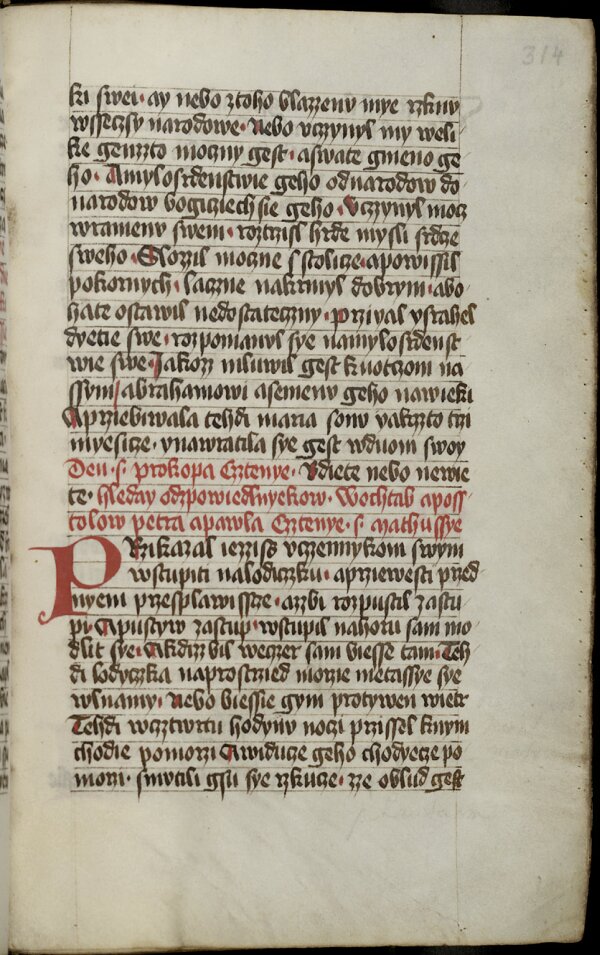 314
ki swei · ay nebo ztoho blazzeny mye rzknu
wsseczsy narodowe · Nebo vczynyl my weli-
ke genzto moczny gest · aswate gmeno ge
ho · Amylosrdenstwie geho odnarodow do
narodow bogiciech sie geho · Vczynyl mocz
wrameny swem · roztrzisl hrde mysli srdcze
sweho · Slozil moczne s stolicze · apowissil
pokornych · laczne nakrmyl dobrym · abo
hate ostawil nedostateczny · prziyal ysrahel
dyetie swe · rozpomanul sye namylosrdenst
wie swe · Jakoz mluwil gest kuotczom na
ssym / abrahamowi asemenu geho nawieki
Aprziebiwala tehdi maria sony yakzto trzi
myesicze · ynawratila sye gest wduom swoy
Den · s · prokopa Cztenye · Vdiete nebo newie
te · hleday odzpowiedlnyekow · Wochtab aposs
tolow petra apawla Cztenye · s · mathussye
PRzikazal iezziss vczennykom swym
wstupiti nalodiczku · aprziewesti przed
nyem przesplawisscze · azzbi rozpustil zastu
pi · Apustyw zastup · wstupil nahoru sam mo
dlit sye · Akdizz bil weczer sam biesse tam · Teh
di lodyczka naprostrzied morzie metassye sye
wlnamy · Nebo biessie gym protywen wietr
Tehdi wcztwrtu hodynu noczi przissel knym
chodie pomorzi Awiducze geho chodyecze po
morzi · smutili gsu sye rzkucze · zze oblud gest